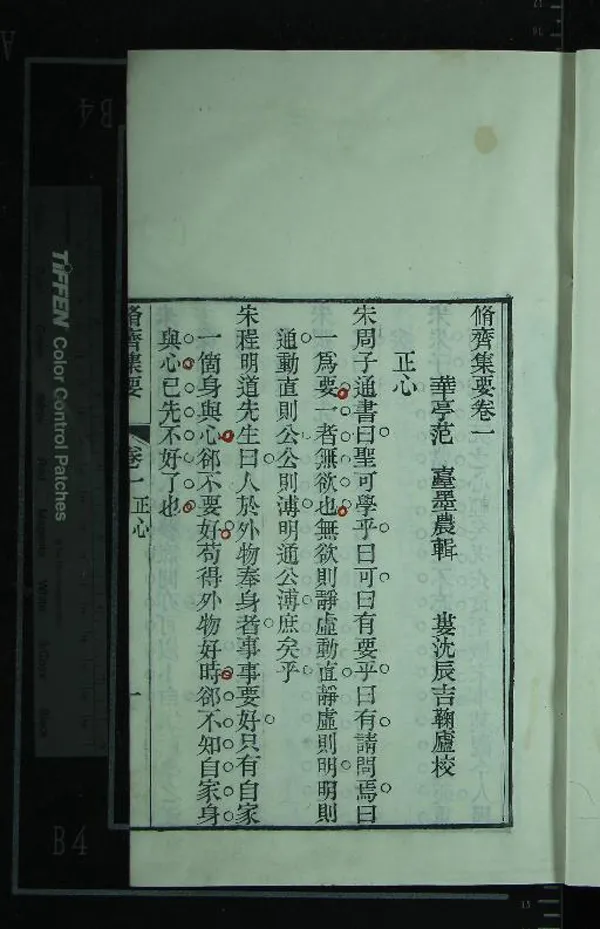 脩齊集要卷一
華亭范 臺墨農輯 婁沈辰吉鞠廬校
正心
宋周子通書曰聖可學乎曰可曰有要乎曰有請問焉曰
一爲要一者無欲也無欲則靜虛動直靜虛則明明則
通動直則公公則溥明通公溥庶矣乎
宋程明道先生曰人於外物奉身者事事要好只有自家
一箇身與心郤不要好苟得外物好時郤不知自家身
與心已先不好了也
脩齊集要 卷一 正心 一
TIFFEN Color Control Patches
B4
B4
A